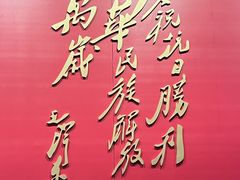 祝抗日勝利
華民族解放
萬歲
毛澤东